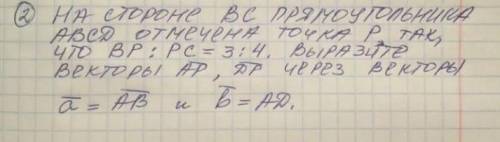 ② НА СТОРОНЕ ВС ПРЯМОУГОЛЬНИКА
ABCD ОТМЕЧЕНА ТОЧКА P ТАК,
ЧТО BP : PC = 3 : 4. ВЫРАЗИТЕ
ВЕКТОРЫ A̅P̅, D̅P̅ ЧЕРЕЗ ВЕКТОРЫ
a̅ = A̅B̅ и b̅ = AD.